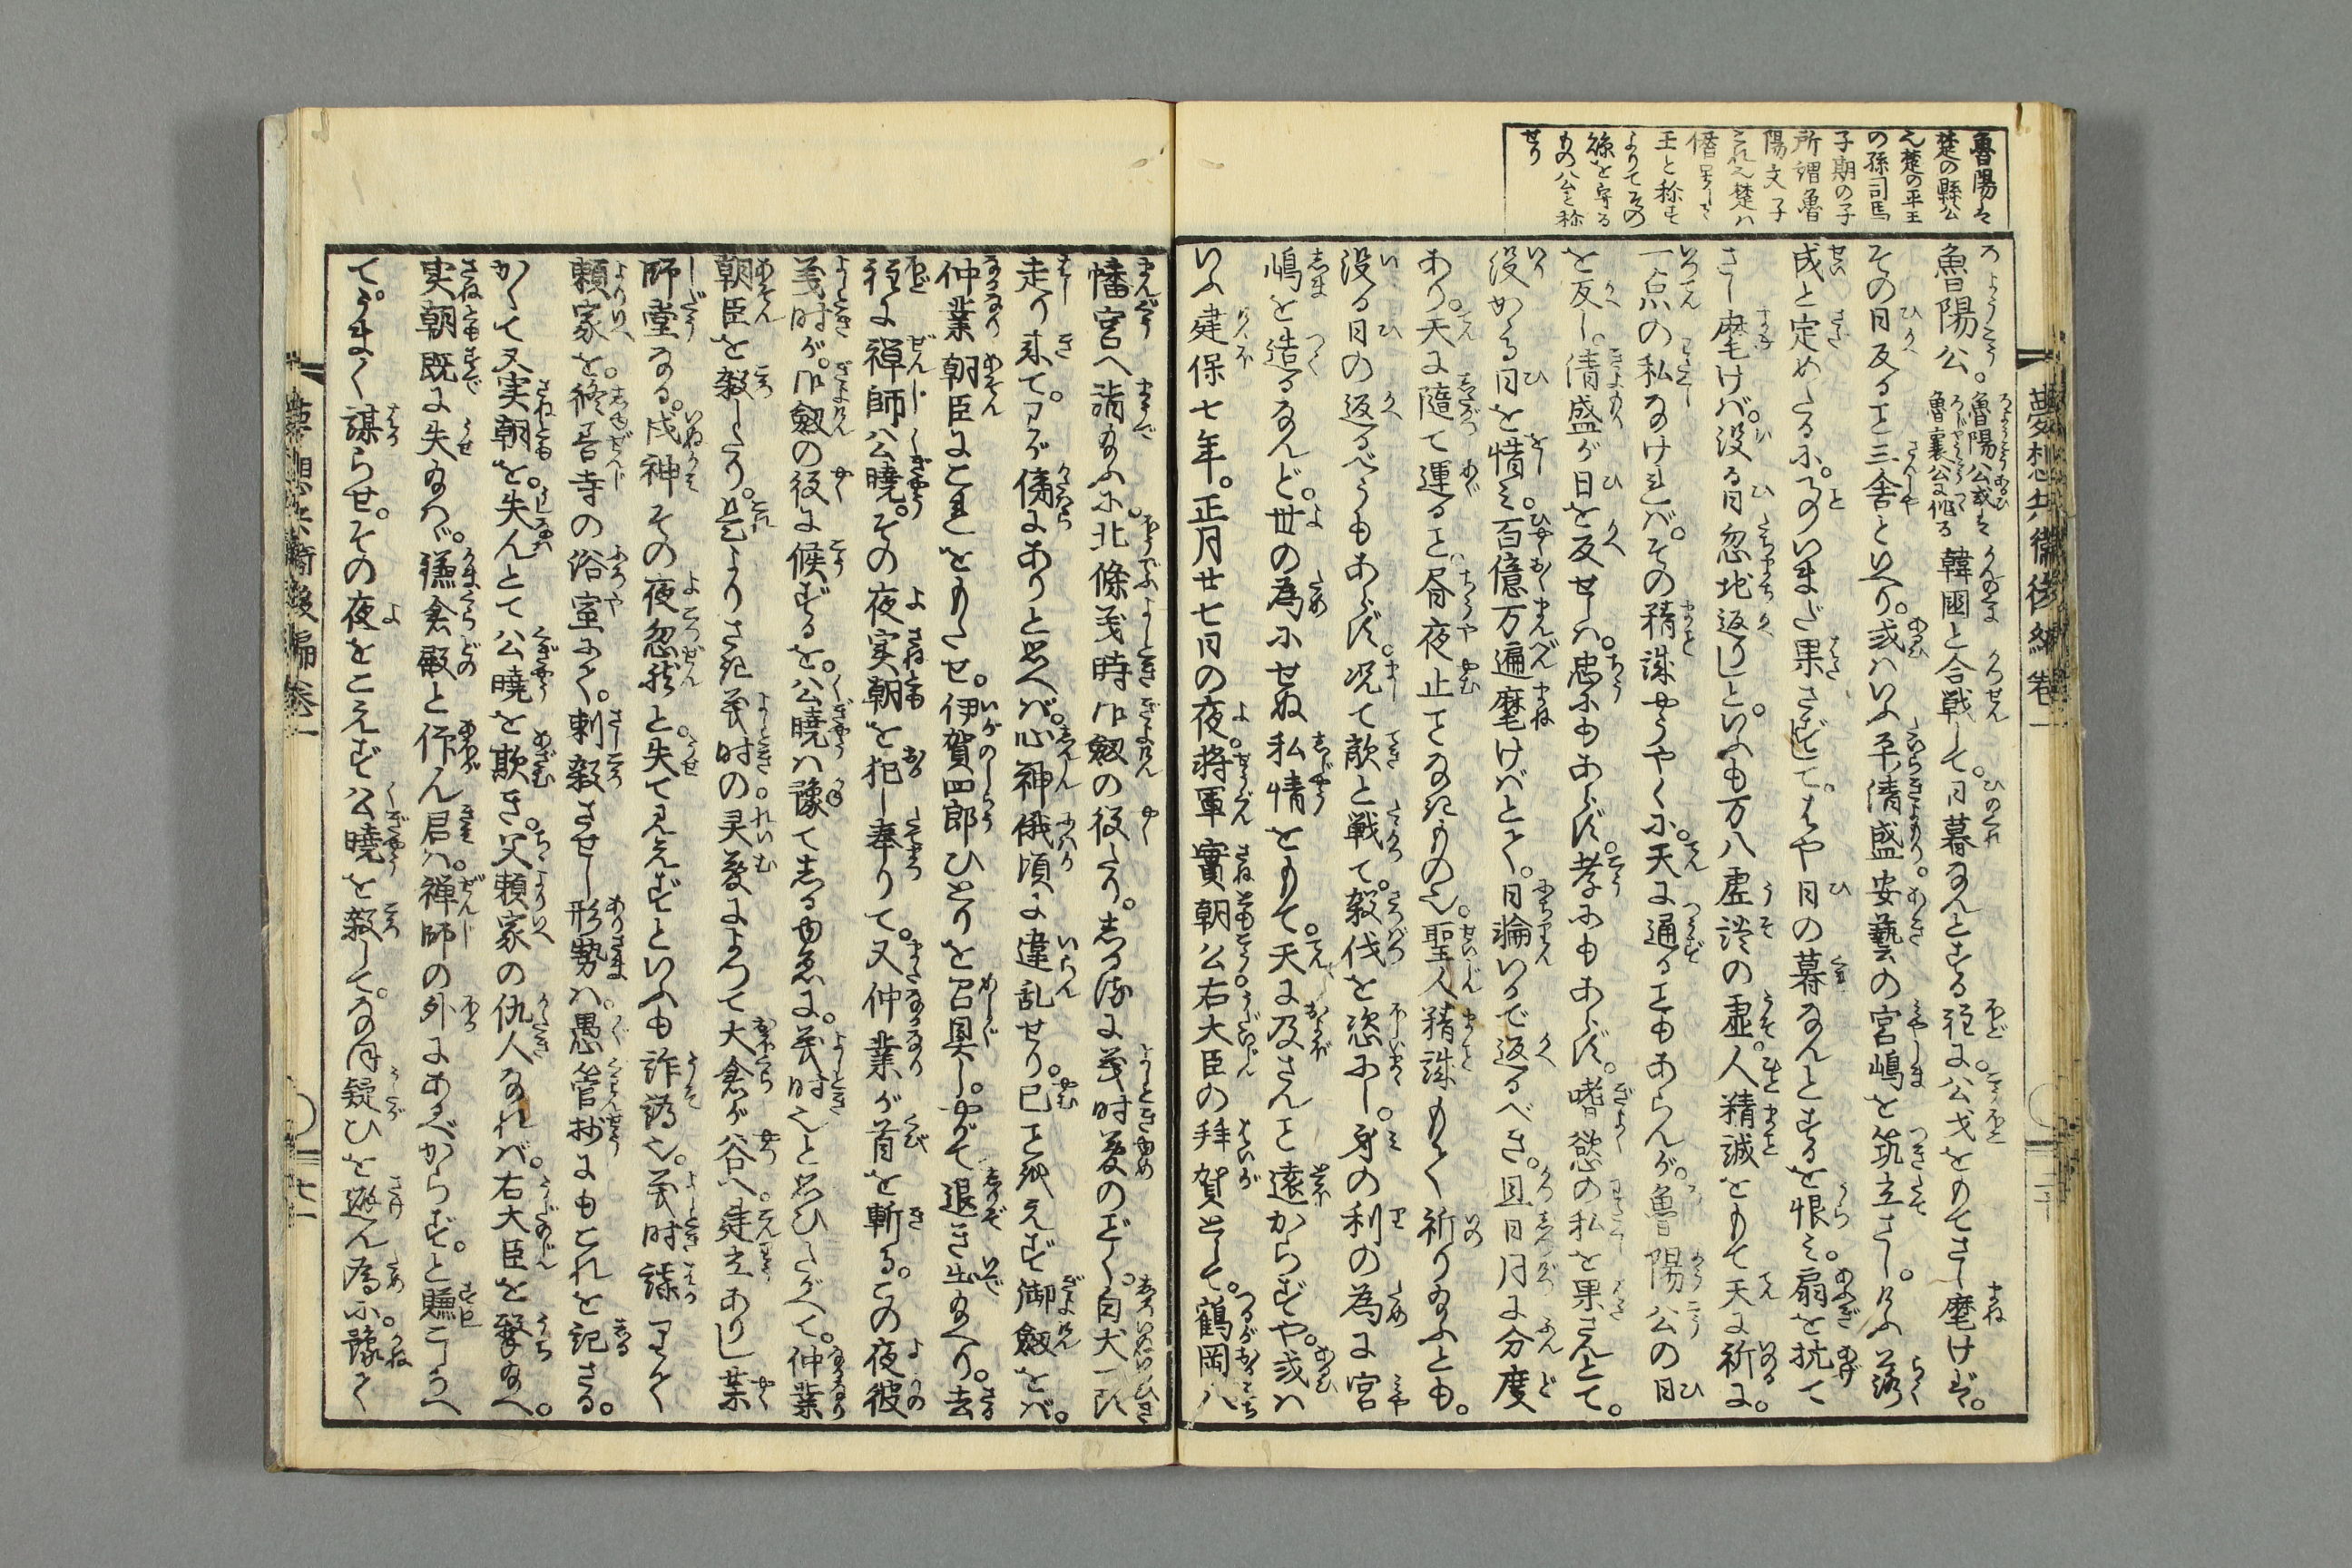 夢想兵衛後編巻一
魯陽は
楚の縣公
也楚の平王
の孫司馬
子期の子
所謂魯
陽文子
これ也楚ハ
僭号して
王と称す
よりてその
縣を守る
もの公と称
せり
魯陽公。魯陽公或は魯襄公に作る韓國と合戦して。日暮なんとする程に。公戈をもてさし麾けば。
その日反ること三舎といへり。或ハいふ平清盛安藝の宮嶋を筑立さし。けふ落
成と定めたるに。事のいまだ果さずして。はや日の暮なんとするを恨み。扇を抗て
さし麾けバ。没る日忽地返りしと。いふも万八虚談の虚。人精誠をもて天に祈に。
一点の私なけれバ。その精誠やうやくに。天に通ることもあらんが。魯陽公の日
を反し。清盛が日を反せしハ。忠にもあらず。孝にもあらず。嗜慾の私を果さんとて。
没かゝる日を惜み。百億万遍麾けばとて。日輪いかで返るべき。且日月に分度
あり。天に随て運ること。昼夜止ことなきもの也。聖人精誠もて祈り給ふとも。
没る日の返るべうもあらず。况て敵と戦て。殺伐を恣にし。身の利の為に宮
嶋を造るなんど。世の為にせぬ私情をもて。天に及さんこと遠からずや。或ハ
いふ建保七年。正月廿七日の夜。将軍實朝公右大臣の拜賀として。鶴岡八
幡宮へ詣給ふに。北條義時御劔の役たり。しかるに義時夢のごとく。白犬一頭
走り来て。わが傍にありと思へバ。心神俄頃に違乱せり。已ことを得えず御劔をバ。
仲業朝臣にこれをもたせ。伊賀四郎ひとりを召具し。やがて退き出給へり。去
程に禅師公曉。その夜実朝を犯し奉りて。又仲業が首を斬る。この夜彼
義时が。御劔の役に候ずるを。公曉ハ豫てしるゆゑに。義时也と思ひたがへて。仲業
朝臣を殺したり。是よりさき義时の灵夢によつて大倉が谷へ建立ありし薬
師堂なる。戌神その夜忽然と。失て見えずといふも詐譌也。義时謀りて
頼家を。修善寺の浴室にて。刺殺させし形勢ハ。愚管抄にもこれを記さる。
かくて又実朝を。失んとて公曉を欺き。父頼家の仇人なれバ。右大臣を撃給へ。
実朝既に失給ハゞ。鎌倉殿と仰ん君ハ。禅師の外にあるべからず。と賺こしらへ
て。うまく謀らせ。その夜をこえず公曉を殺して。なほ疑ひを避ん為に。豫て
夢想兵衛後編巻一